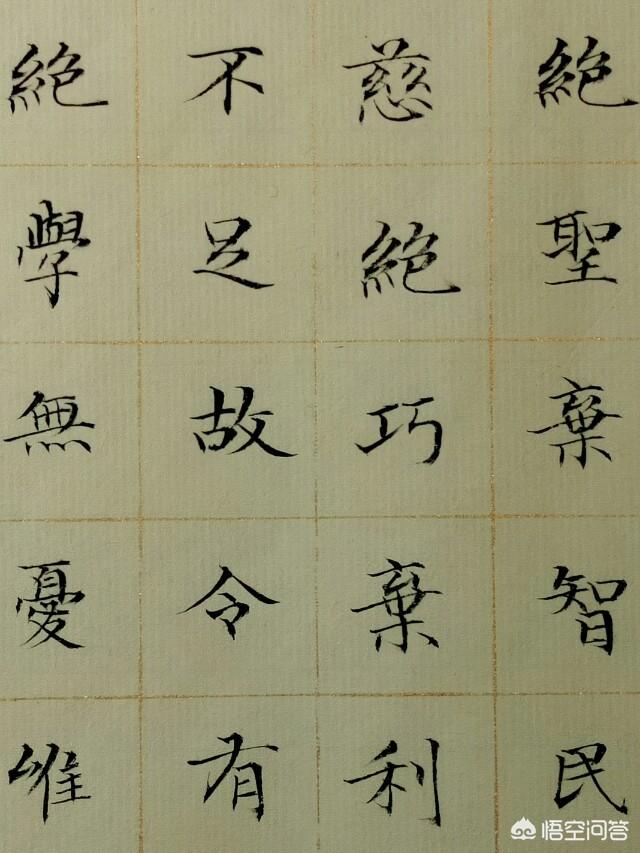 絕聖棄智民
慈絕巧棄利
不足故令有
絕學無憂唯
悟空问答